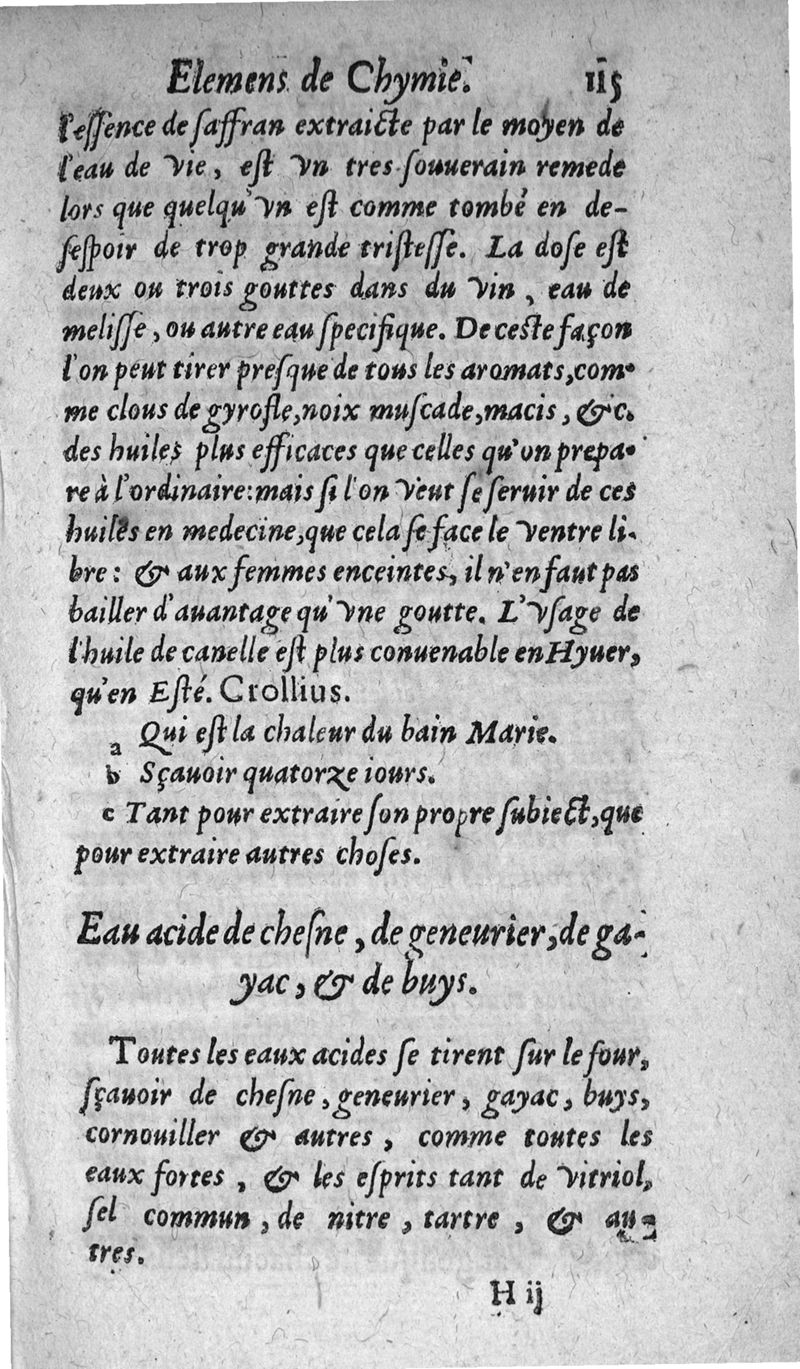 Elemens de Chymie. 115
l'eſſence de ſaffran extraicte par le moyen de
l'eau de vie, eſt vn tres ſouuerain remede
lors que quelqu'vn eſt comme tombé en de-
ſeſpoir de trop grande triſteſſe. La doſe eſt
deux ou trois gouttes dans du vin, eau de
meliſſe, ou autre eau ſpecifique. De ceſte façon
l'on peut tirer preſque de tous les aromats, com-
me clous de gyrofle, noix muſcade, macis, &c.
des huiles plus efficaces que celles qu'on prepa-
re à l'ordinaire: mais ſi l'on veut ſe ſeruir de ces
huiles en medecine, que cela ſe face le ventre li-
bre: & aux femmes enceintes, il n'en faut pas
bailler d'auantage qu'vne goutte. L'vſage de
l'huile de canelle eſt plus conuenable en Hyuer,
qu'en Eſté. Crollius.
a Qui eſt la chaleur du bain Marie.
b Sçauoir quatorze iours.
c Tant pour extraire ſon propre ſubiect, que
pour extraire autres choſes.
Eau acide de cheſne, de geneurier, de ga-
yac, & de buys.
Toutes les eaux acides ſe tirent ſur le four,
ſçauoir de cheſne, geneurier, gayac, buys,
cornouiller & autres, comme toutes les
eaux fortes, & les eſprits tant de vitriol,
ſel commun, de nitre, tartre, & au-
tres.
H ij